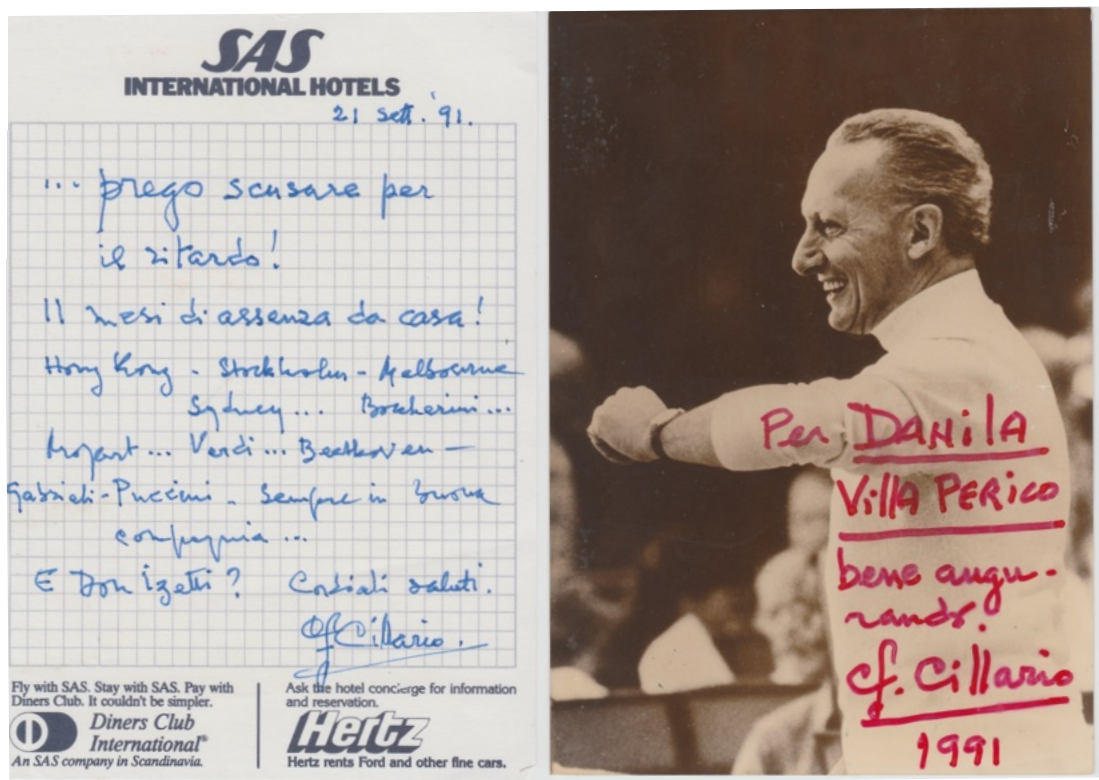 SAS
INTERNATIONAL HOTELS
21 Sett. '91.
... prego scusare per
il ritardo!
11 mesi di assenza da casa!
Hong Kong - Stockholm - Melbourne
Sydney... Boccherini...
Mozart... Verdi... Beethoven -
Gabrieli - Puccini - Sempre in buona
compagnia...
E Donizetti? Cordiali saluti.
CfCillario.
Fly with SAS. Stay with SAS. Pay with
Diners Club. It couldn't be simpler.
Diners Club
International®
An SAS company in Scandinavia.
Ask the hotel concierge for information
and reservation.
Hertz
Hertz rents Ford and other fine cars.
Per DANilA
Villa PERICO
bene augu-
rando!
Cf. Cillario
1991